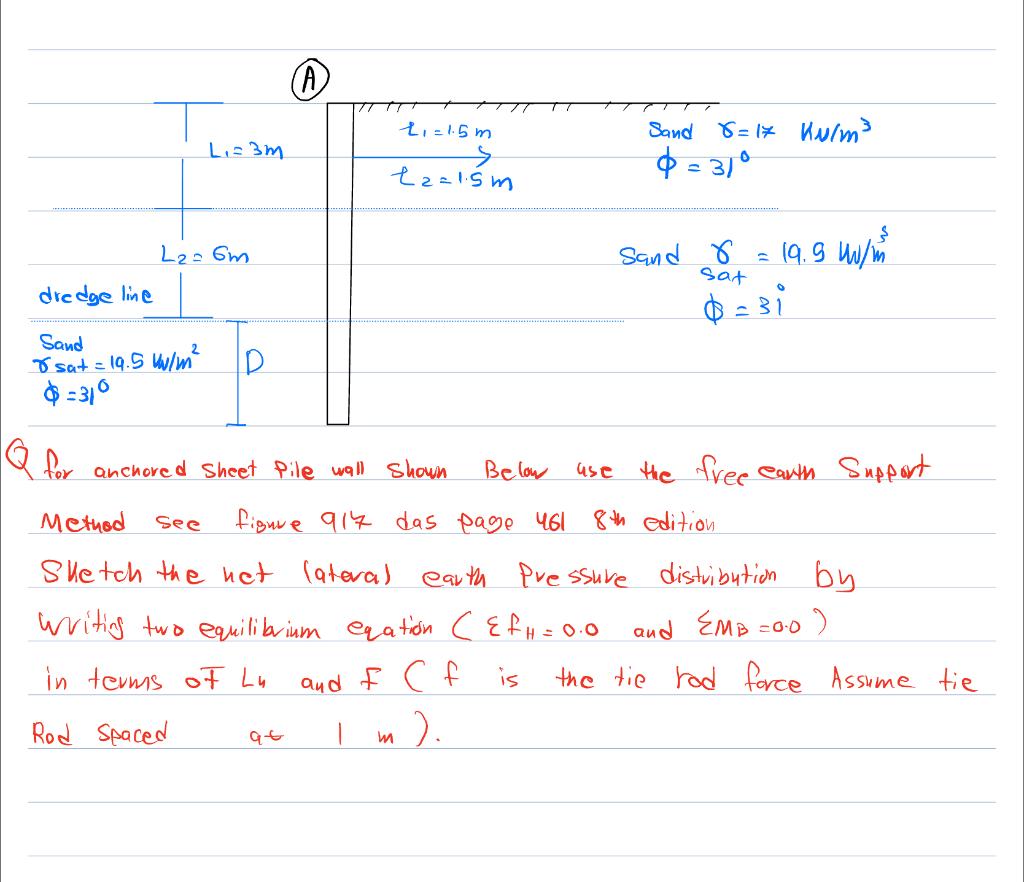 A
l1 = 1.5 m
Sand γ = 17 KN/m³
L1 = 3m
l2 = 1.5 m
ϕ = 31°
L2 = 6m
Sand γsat = 19.9 kN/m³
dredge line
ϕ = 31°
Sand
γsat = 19.5 kN/m²
D
ϕ = 31°
Q for anchored Sheet Pile wall Shown Below use the free earth Support
Method see figure 917 das page 461 8th edition
Sketch the net lateral earth Pressure distribution by
Writing two equilibrium eqation (ΣfH = 0.0 and ΣMB = 0.0)
in terms of L4 and F (f is the tie rod force Assume tie
Rod spaced at 1 m).